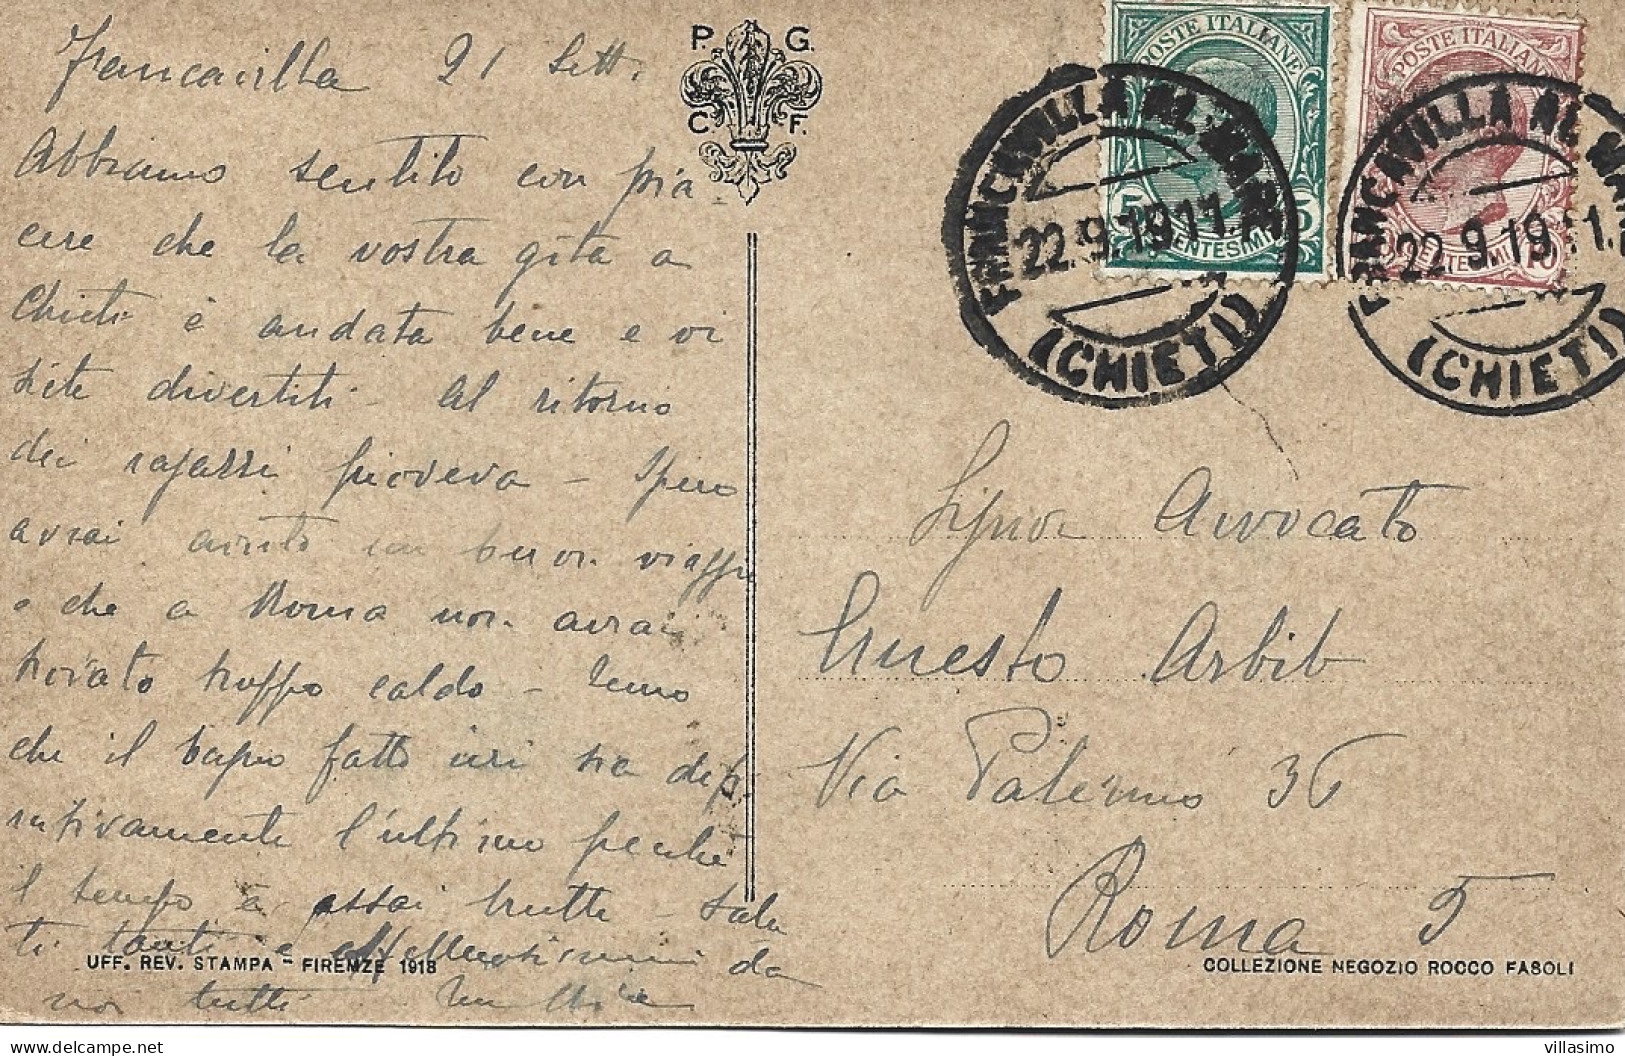 Francavilla 21 Sett.
P. G.
C. F.
Abbiamo sentito con pia-
cere che la vostra gita a
Chieti è andata bene e vi
siete divertiti - Al ritorno
dei ragazzi pioveva - Spero
avrai avuto un buon viaggio
e che a Roma non avrai
trovato troppo caldo - Temo
che il bagno fatto ieri sia defi-
nitivamente l'ultimo perché
il tempo è assai brutto - Salu
ti tanti e affettuosissimi da
noi tutti
UFF. REV. STAMPA - FIRENZE 1918
POSTE ITALIANE
5 CENTESIMI 5
POSTE ITALIANE
CENTESIMI 10
FRANCAVILLA AL MARE
22.9.19 11.
(CHIETI)
FRANCAVILLA AL MAR
22.9.19 11.
(CHIETI)
Signor Avvocato
Ernesto Arbib
Via Palermo 36
Roma 5
COLLEZIONE NEGOZIO ROCCO FASOLI
villasimo
delcampe.net